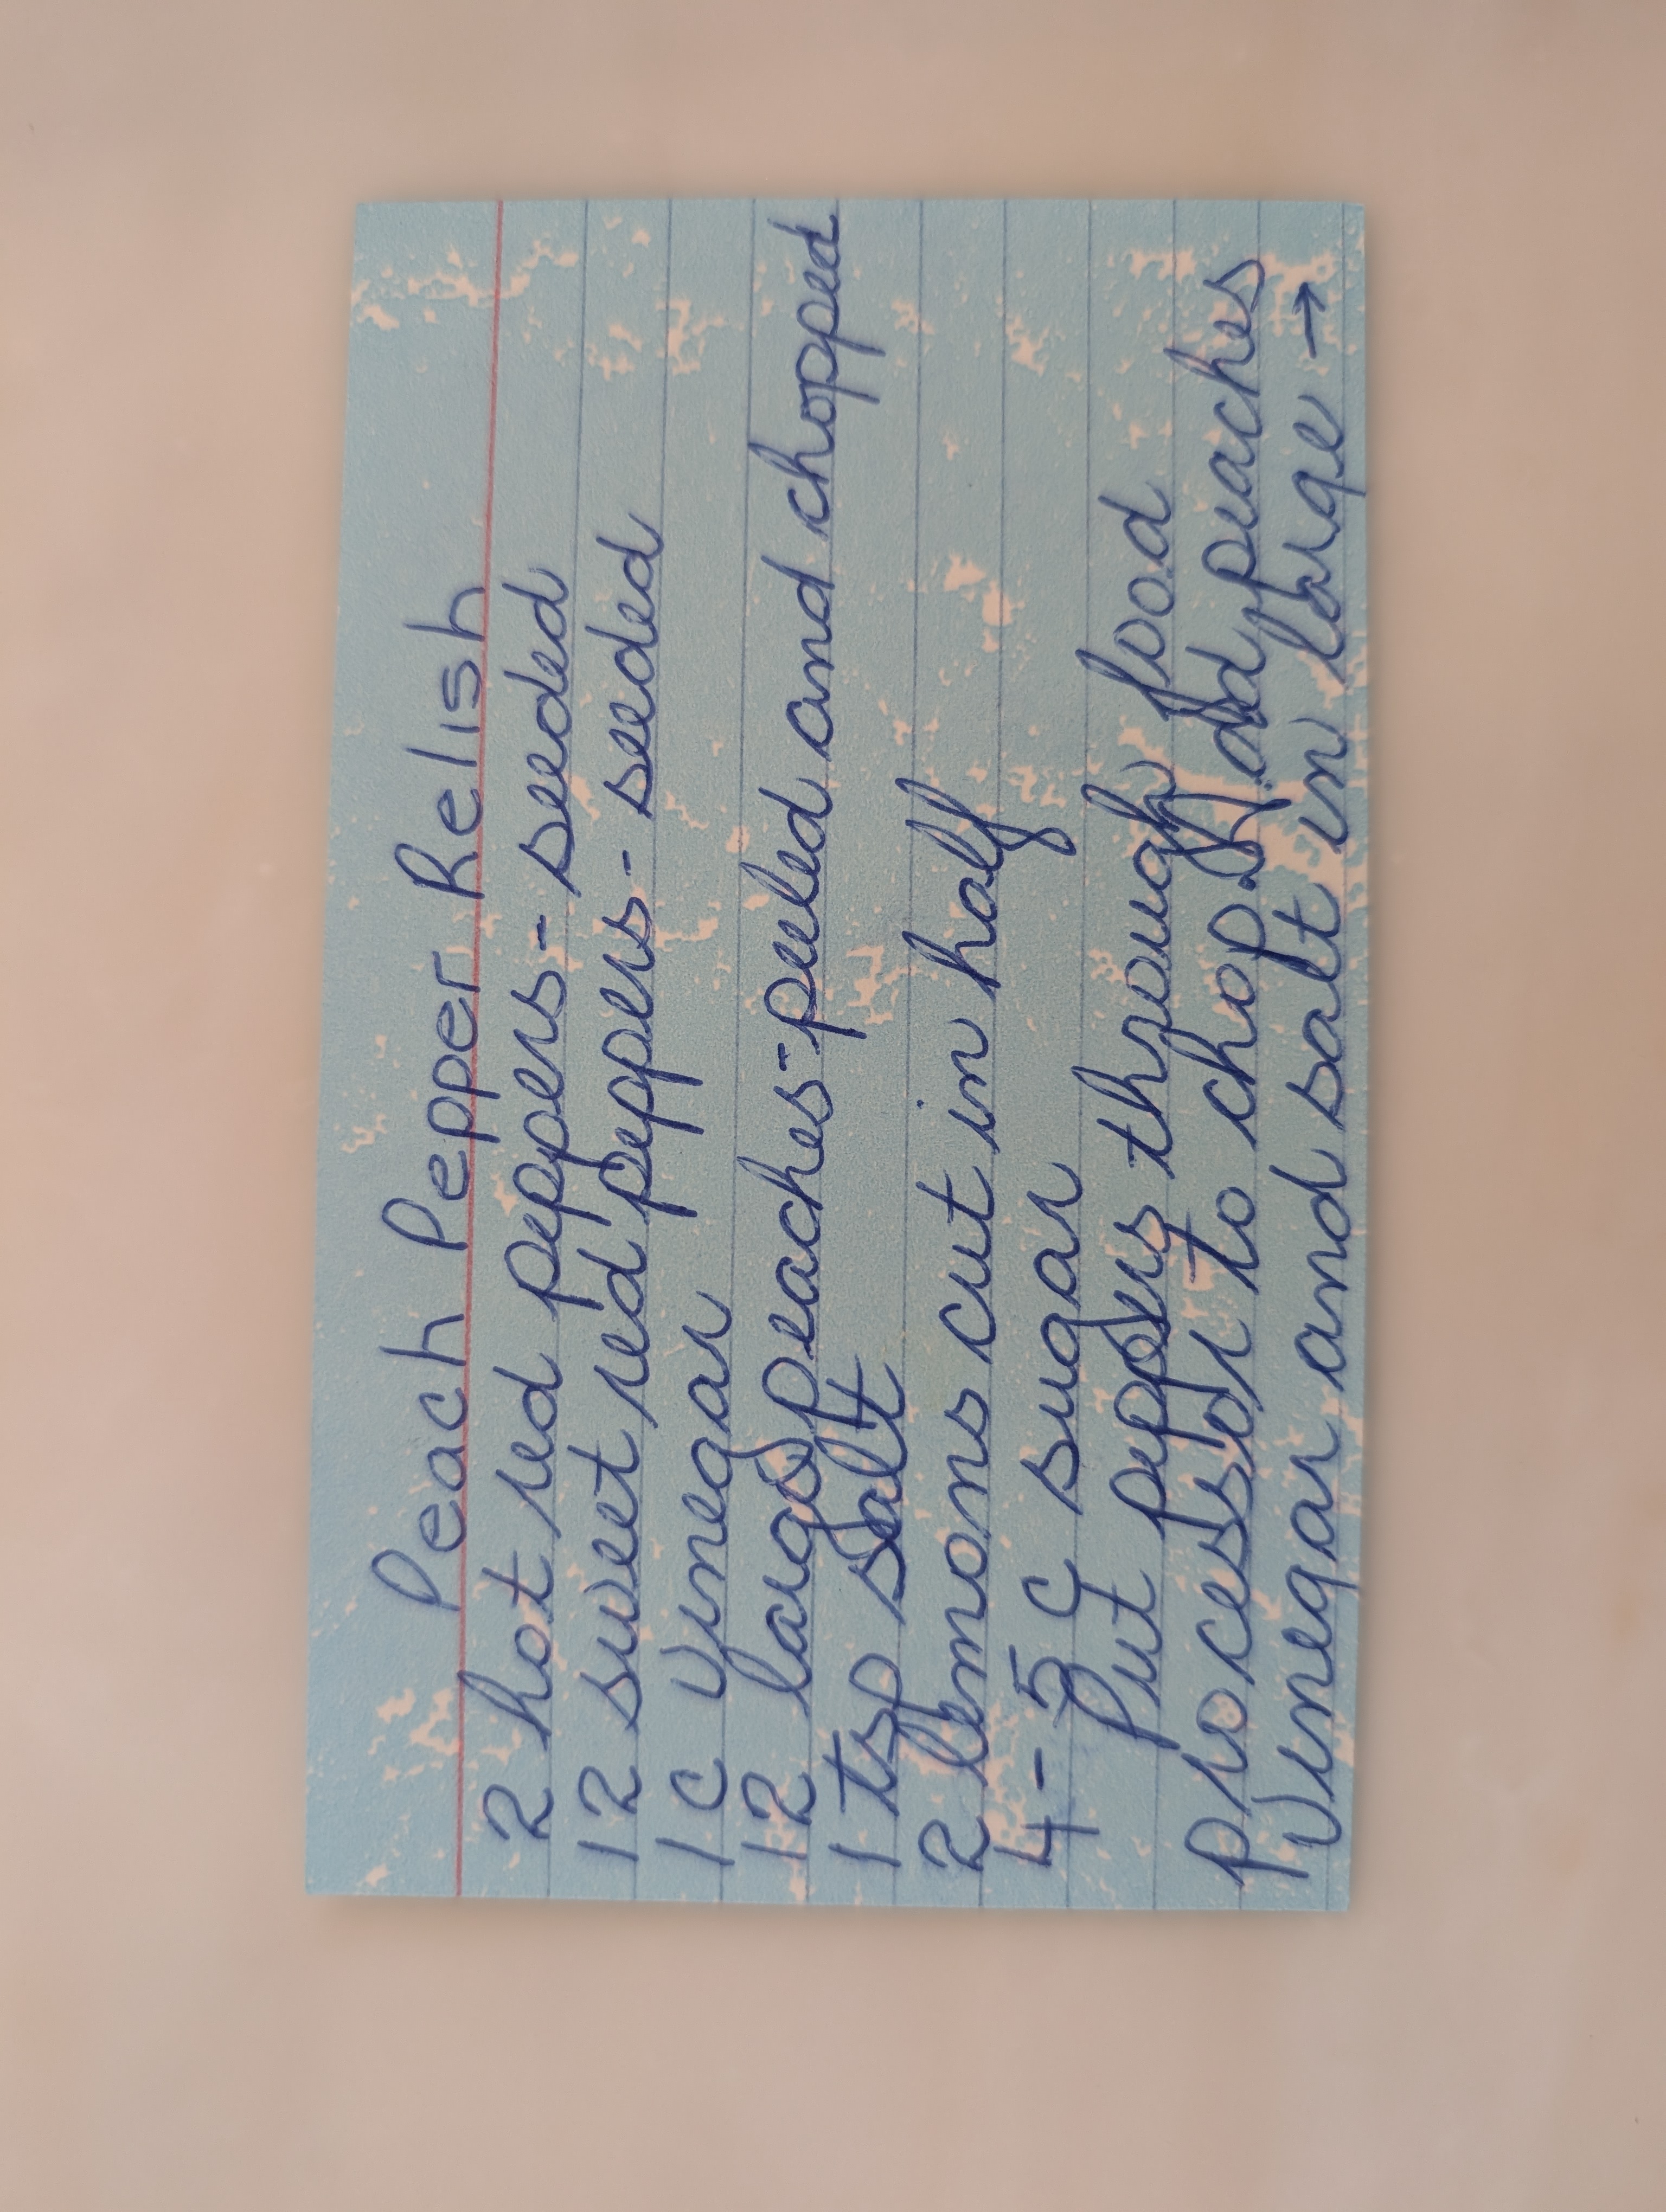 Peach Pepper Relish
2 hot red peppers - seeded
12 sweet red peppers - seeded
1 c vinegar
12 large peaches - peeled and chopped
1 tsp salt
2 lemons cut in half
4-5 c sugar
Put peppers through food
processor to chop. Add peaches
vinegar and salt in large →